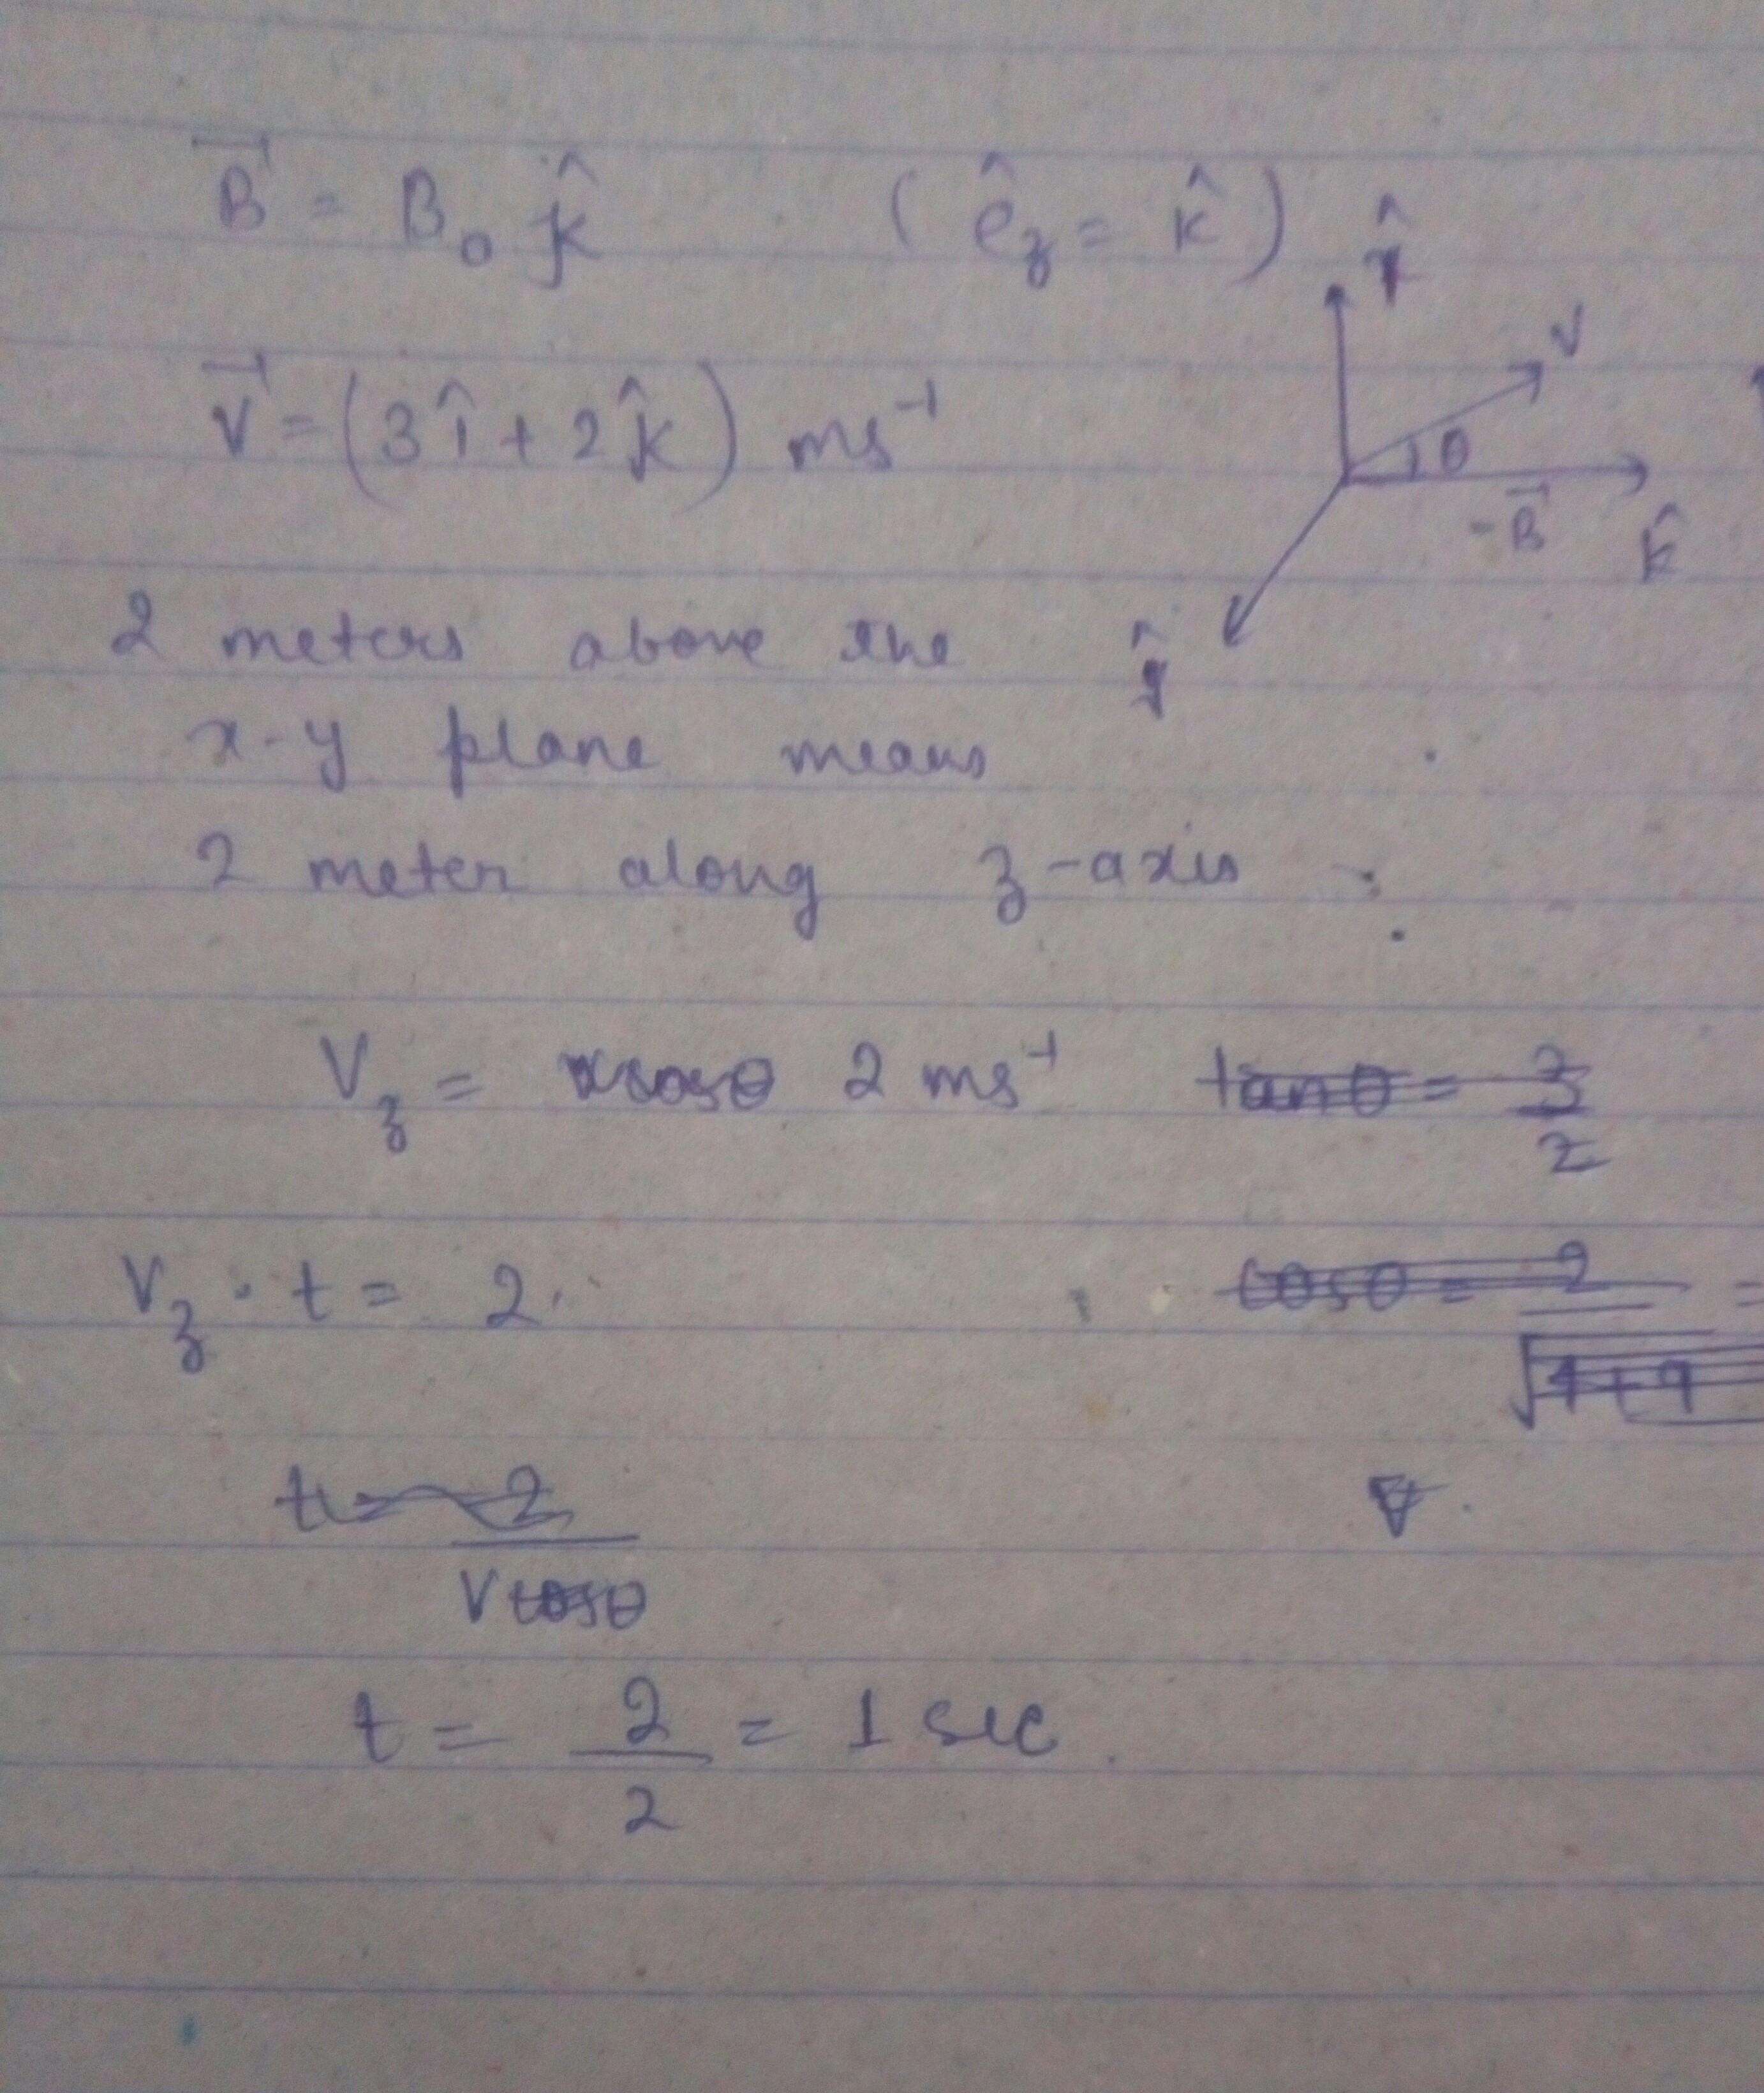 B⃗ = B₀ k̂ ( ê_z = k̂ )
x̂
V⃗ = (3î + 2k̂) ms⁻¹
V
θ
B⃗
k̂
2 meters above the
ŷ
x-y plane means
2 meter along z-axis
V_z = 2 ms⁻¹ tanθ = 3/2
V_z · t = 2. cosθ = 2/√4+9 =
t = 2/Vcosθ
t = 2/2 = 1 sec.